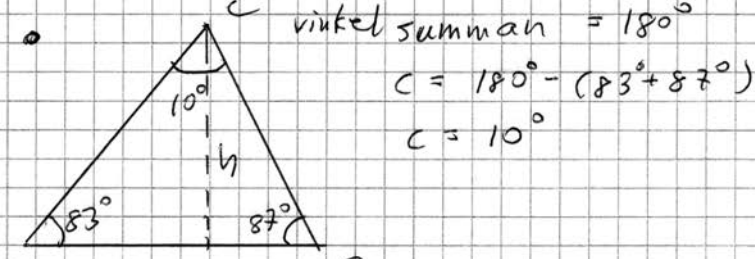 C vinkel summan = 180°
C = 180° - (83° + 87°)
10°
C = 10°
h
83° 87°